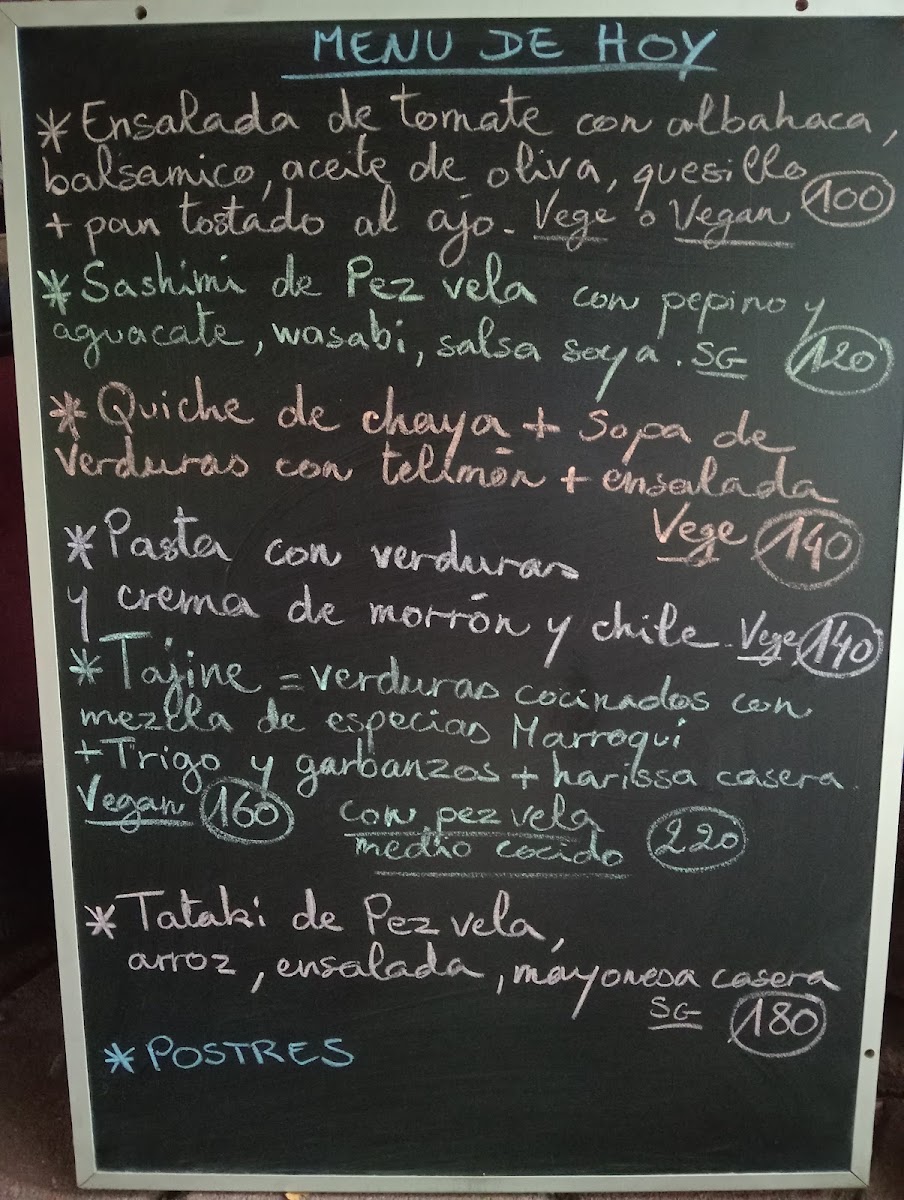 MENU DE HOY
* Ensalada de tomate con albahaca,
balsamico, aceite de oliva, quesillo
+ pan tostado al ajo. Vege o Vegan 100
* Sashimi de Pez vela con pepino y
aguacate, wasabi, salsa soya. SG 120
* Quiche de chaya + Sopa de
verduras con telimón + ensalada
Vege 140
* Pasta con verduras
y crema de morrón y chile. Vege 140
* Tajine = verduras cocinados con
mezcla de especias Marroqui
+ Trigo y garbanzos + harissa casera.
Vegan 160 con pez vela
medio cocido 220
* Tataki de Pez vela,
arroz, ensalada, mayonesa casera
SG 180
* POSTRES